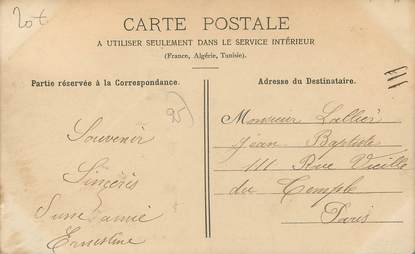 20t
CARTE POSTALE
A UTILISER SEULEMENT DANS LE SERVICE INTÉRIEUR
(France, Algérie, Tunisie).
Partie réservée à la Correspondance.
Souvenir
Sincéris
D'une amie
Ernestine
25
Adresse du Destinataire.
Monsieur Lallier
jean Baptiste
111 Rue Vieille
du Temple
Paris